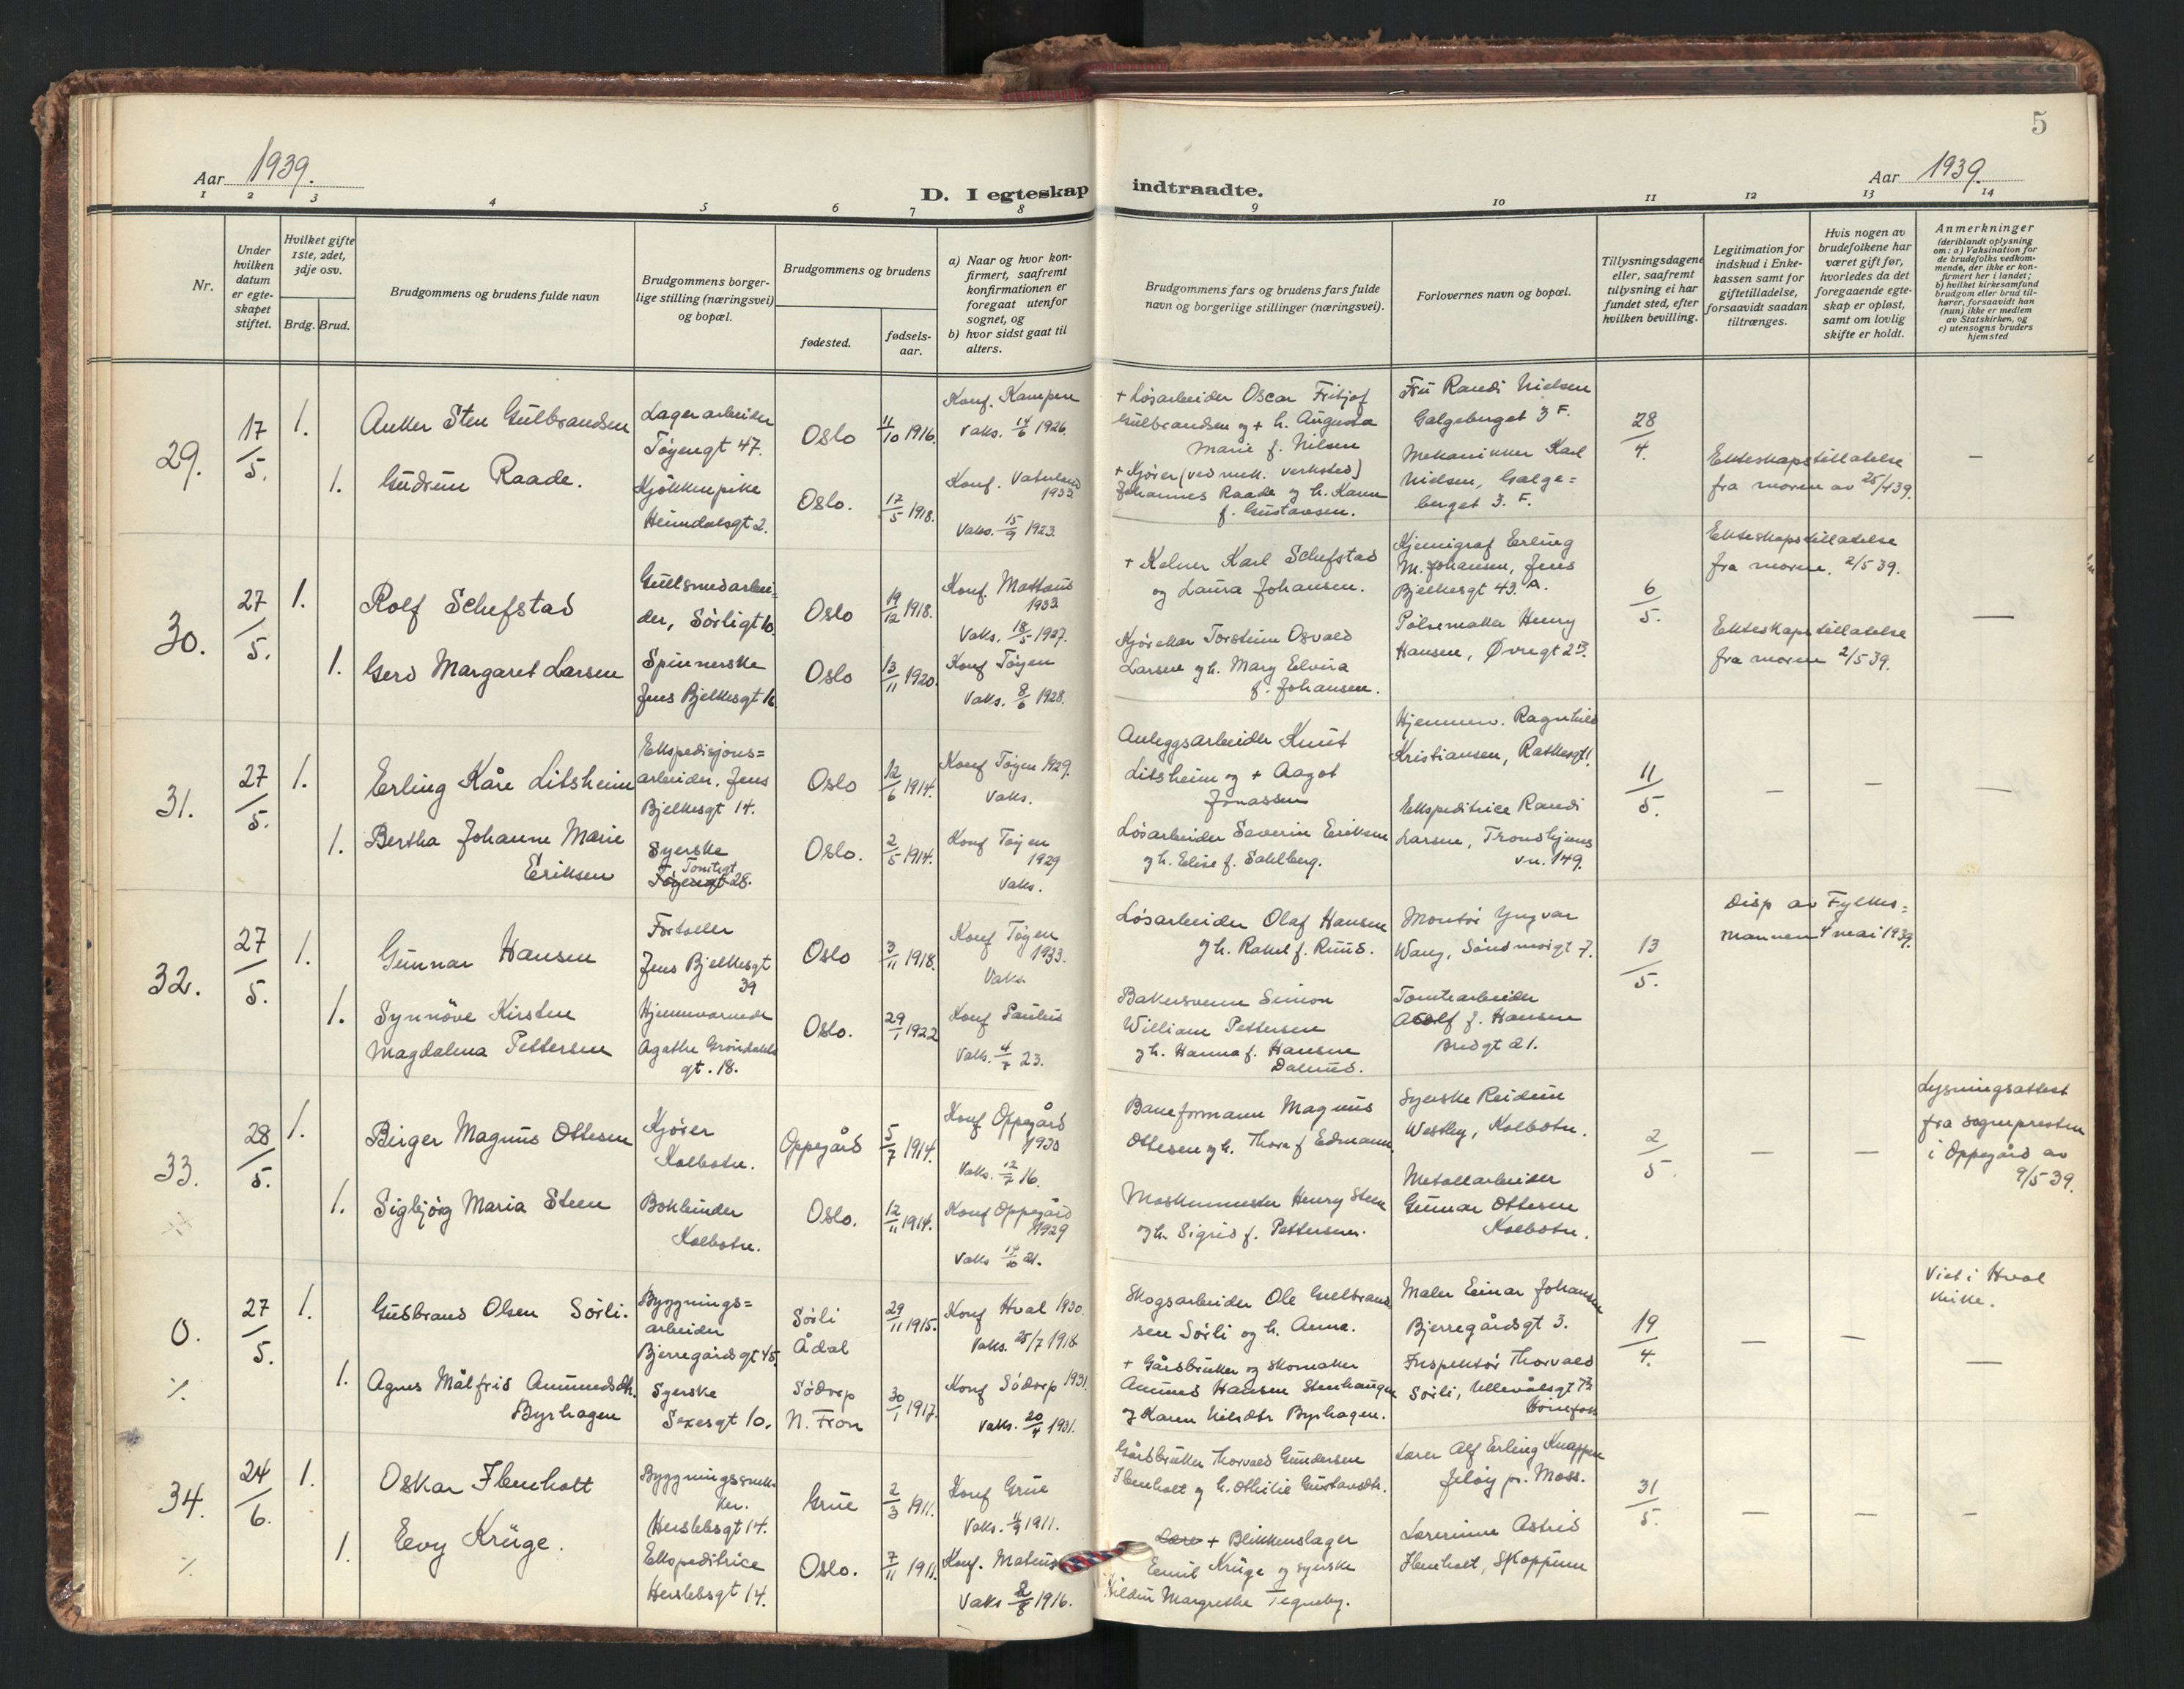 5
Aar 1939.
D. I egteskap indtraadte.
Aar 1939.
1 2 3 4 5 6 7 8 9 10 11 12 13 14
Nr.
Under hvilken datum er egte-skapet stiftet.
Hvilket gifte 1ste, 2det, 3dje osv.
Brdg. Brud.
Brudgommens og brudens fulde navn
Brudgommens borger-lige stilling (næringsvei) og bopæl.
Brudgommens og brudens
fødested.
fødsels-aar.
a) Naar og hvor kon-firmert, saafremt konfirmationen er foregaat utenfor sognet, og
b) hvor sidst gaat til alters.
Brudgommens fars og brudens fars fulde navn og borgerlige stillinger (næringsvei).
Forlovernes navn og bopæl.
Tillysningsdagene eller, saafremt tillysning ei har fundet sted, efter hvilken bevilling.
Legitimation for indskud i Enke-kassen samt for giftetilladelse, forsaavidt saadan tiltrænges.
Hvis nogen av brudefolkene har været gift før, hvorledes da det foregaaende egte-skap er opløst, samt om lovlig skifte er holdt.
Anmerkninger
(deriblandt oplysning om: a) Vaksination for de brudefolks vedkom-mende, der ikke er kon-firmert her i landet; b) hvilket kirkesamfund brudgom eller brud til-hører, forsaavidt han (hun) ikke er medlem av Statskirken, og c) utensogns bruders hjemsted
29.
17/5.
1.
Anker Sten Gulbrandsen
Lagerarbeider
Tøyengt 47.
Oslo
11/10 1916.
Konf. Kampen
Vaks. 14/6 1926.
+ Løsarbeider Oscar Fritjof
Gulbrandsen og + h. Augusta
Marie f. Nilsen
Fru Randi Nielsen
Galgeberget 3 F.
28/4.
1.
Gudrun Raade.
Kjøkkenpike
Heimdalsgt 2.
Oslo.
17/5 1918.
Konf. Vaterland
1933
Vaks. 15/9 1923.
+ Kjører (ved mek. verksted)
Johannes Raade og h. Karen
f. Gustavsen.
Mekanikker Karl
Nielsen, Galge=
berget 3. F.
Ekteskapstillatelse
fra moren av 25/4 39.
—
30.
27/5.
1.
Rolf Schefstad
Gullsmedarbei=
der, Sørligt 10.
Oslo
19/12 1918.
Konf. Mattæus
1933
Vaks. 18/5 1927.
+ Kelner Karl Schefstad
og Laura Johansen.
Kjemigraf Erling
M. Johansen, Jens
Bjelkesgt 43. A.
6/5.
Ekteskapstillatelse
fra moren. 2/5 39.
1.
Gerd Margaret Larsen
Spinnerske
Jens Bjelkesgt 16
Oslo
13/11 1920.
Konf Tøyen
Vaks. 8/6 1928.
Kjørekar Torstein Osvald
Larsen og h. Mary Elvira
f. Johansen.
Pølsemaker Henry
Hansen, Øvregt 2
Ekteskapstillatelse
fra moren 2/5 39.
—
31.
27/5.
1.
Erling Kåre Litsheim
Ekspedisjons=
arbeider. Jens
Bjelkesgt 14.
Oslo
12/6 1914.
Konf Tøyen 1929.
Vaks.
Anleggsarbeider Knut
Litsheim og + Aagot
Jonassen
Hjemmev. Ragnhild
Kristiansen, Rathkesgt 1.
11/5.
— — —
1.
Bertha Johanne Marie
Eriksen
Syerske
Tomtegt
Tøyengt 28.
Oslo.
2/5 1914.
Konf Tøyen
1929
Vaks.
Løsarbeider Severin Eriksen
og h. Elise f. Sahlberg.
Ekspeditrice Randi
Larsen, Trondhjems
vn. 149.
32.
27/5.
1.
Gunnar Hansen
Fortoller
Jens Bjelkesgt
39
Oslo
3/11 1918.
Konf Tøyen
1933.
Vaks.
Løsarbeider Olaf Hansen
og h. Rakel f. Ruud.
Montør Yngvar
Wang, Sandmoigt 7.
13/5.
Disp av Fylkes=
mannen 4 mai 1939.
1.
Synnøve Kirsten
Magdalena Pettersen
Hjemmeværende
Agathe Grøndahls
gt. 18.
Oslo.
29/1 1922
Konf Paulus
Vaks. 4/7 23.
Bakersvenn Simon
William Pettersen
og h. Hanna f. Hansen
Dalmud.
Tomtearbeider
Adolf J. Hansen
Bredgt 21.
33.
28/5.
1.
Birger Magnus Ottesen
Kjører
Kolbotn.
Oppegård
5/7 1914.
Konf Oppegård
1930
Vaks. 12/7 16.
Baneformann Magnus
Ottesen og h. Thora f Edmann
Syerske Reidun
Westby, Kolbotn.
2/5.
— —
Lysningsattest
fra sognepresten
i Oppegård av
9/5 39.
1.
Sigbjørg Maria Steen
Bokbinder
Kolbotn.
Oslo.
12/11 1914.
Konf Oppegård
1929
Vaks 14/10 21.
Maskinmester Henry Steen
og h. Sigrid f. Pettersen.
Metallarbeider
Gunnar Ottesen
Kolbotn.
0.
27/5.
1.
Gudbrand Olsen Sørli.
Bygnings=
arbeider
Bjerregårdsgt 45.
Sørli
Ådal
29/11 1915.
Konf Hval 1930.
Vaks. 25/7 1918
Skogsarbeider Ole Gulbrand
sen Sørli og h. Anna.
Maler Einar Johansen
Bjerregårdsgt 3.
19/4.
— — —
Viet i Hval
kirke.
%
1.
Agnes Målfrid Amundsdtr.
Byrhagen
Syerske
Sexesgt 10.
Sødorp
N. Fron
30/1 1917.
Konf Sødorp 1931.
Vaks. 20/4 1931.
+ Gårdbruker og skomaker
Amund Hansen Stenhaugen
og Karen Nilsdtr Byrhagen.
Inspektør Thorvald
Sørli, Ullevålsgt
Hønefoss
34.
24/6.
1.
Oskar Ibenholt
Bygningssnek-
ker.
Herslebsgt 14.
Grue
2/3 1911.
Konf Grue
Vaks. 4/9 1911.
Gårdbruker Thorvald Gundersen
Ibenholt og h. Othilie Gustavsdtr.
Lærer Alf Erling Knappen
Jeløy pr. Moss.
31/5.
— — —
%
1.
Eevy Krüge.
Ekspeditrice
Herslebsgt 14.
Oslo.
7/11 1911.
Konf. Mateus
Vaks 2/8 1916.
+ Blikkenslager
Emil Krüge og syerske
Hildur Margrethe Tegneby.
Lærerinne Astrid
Ibenholt, Skoppum